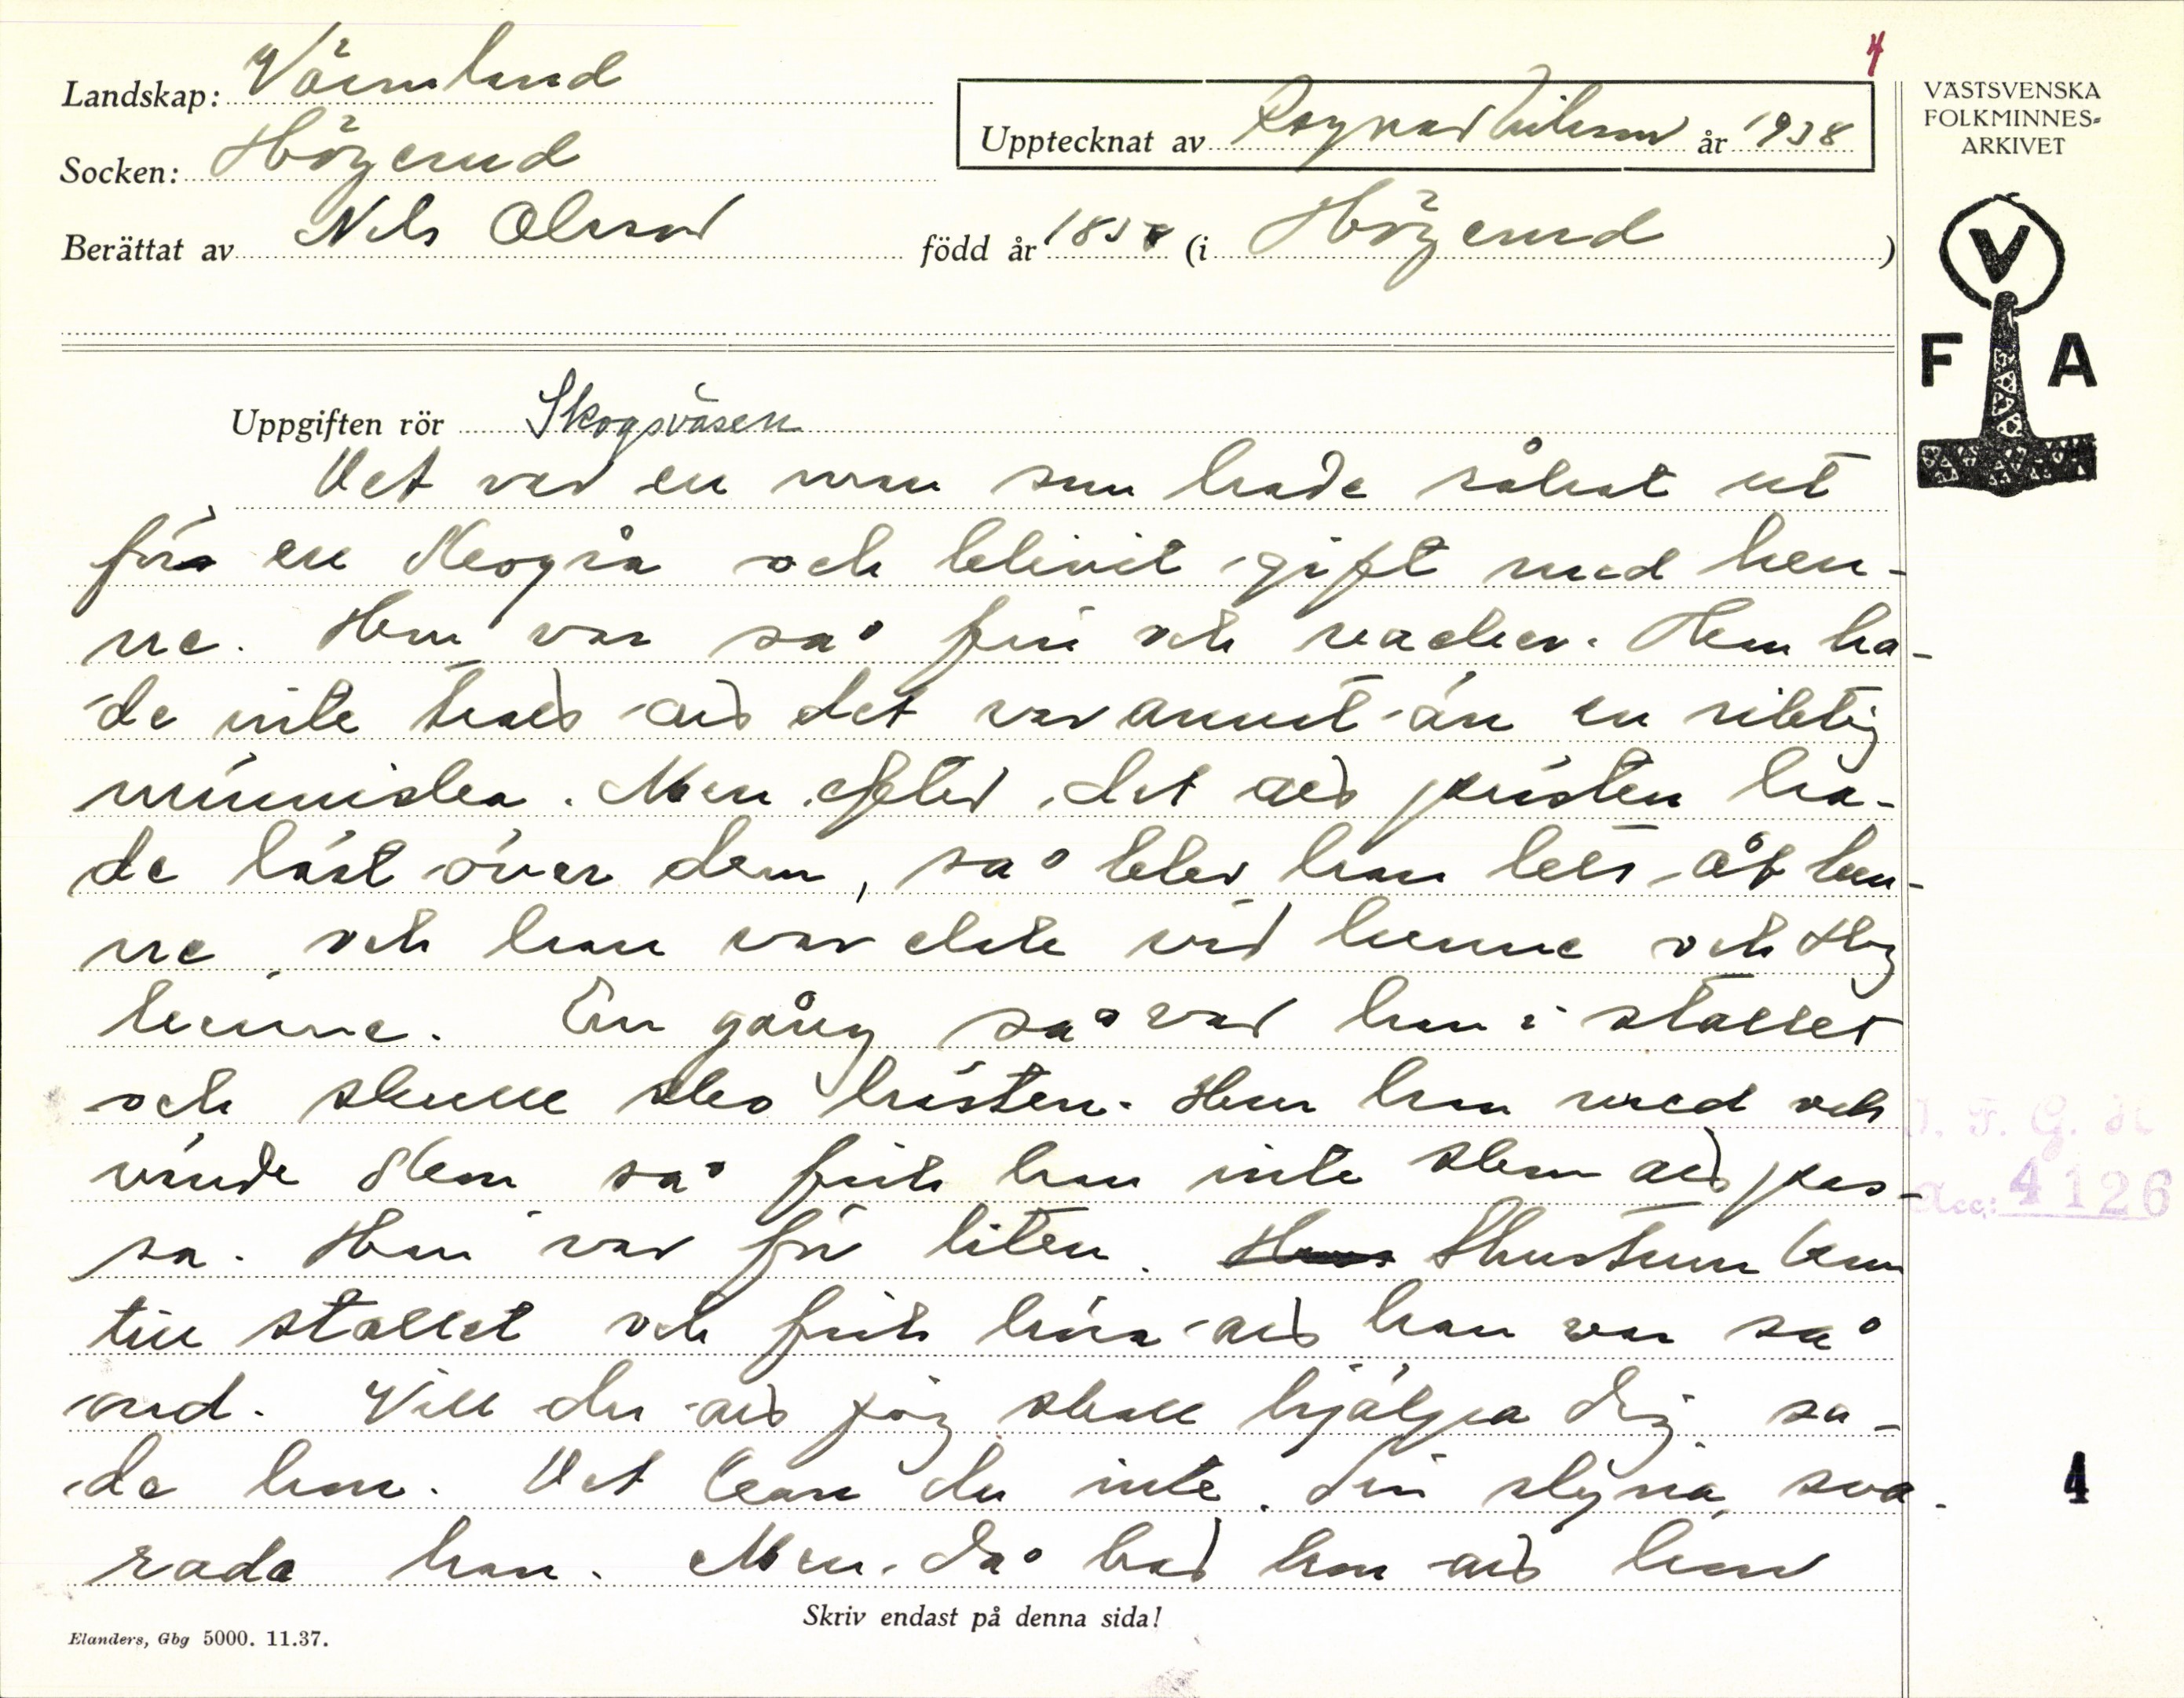 4
Landskap: Värmland
Socken: Högerud
Upptecknat av Ragnar Nilsson år 1938
Berättat av Nils Olsson född år 185 (i Högerud)
VÄSTSVENSKA
FOLKMINNES-
ARKIVET
V
F A
Uppgiften rör Skogsväsen
Det var en man som hade råkat ut
för en skogrå och blivit gift med hen-
ne. Hon var så fin och vacker. Han ha-
de inte trott att det var annat än en riktig
människa. Men efter det att prästen ha-
de läst över dem, så blev han led åt hen-
ne och han var elak vid henne och slog
henne. En gång så var han i stallet
och skulle sko hästen. Hur han med och
vände skon så fick han inte skon att pas-
sa. Hon var för liten. Hustrun kom
till stallet och fick höra att han var så
ond. Vill du att jag skall hjälpa dig sa-
de hon. Det kan du inte, din slyna sva-
rade han. Men då bad hon att han
I. F. G. H
Acc: 4126
4
Skriv endast på denna sida!
Elanders, Gbg 5000. 11.37.